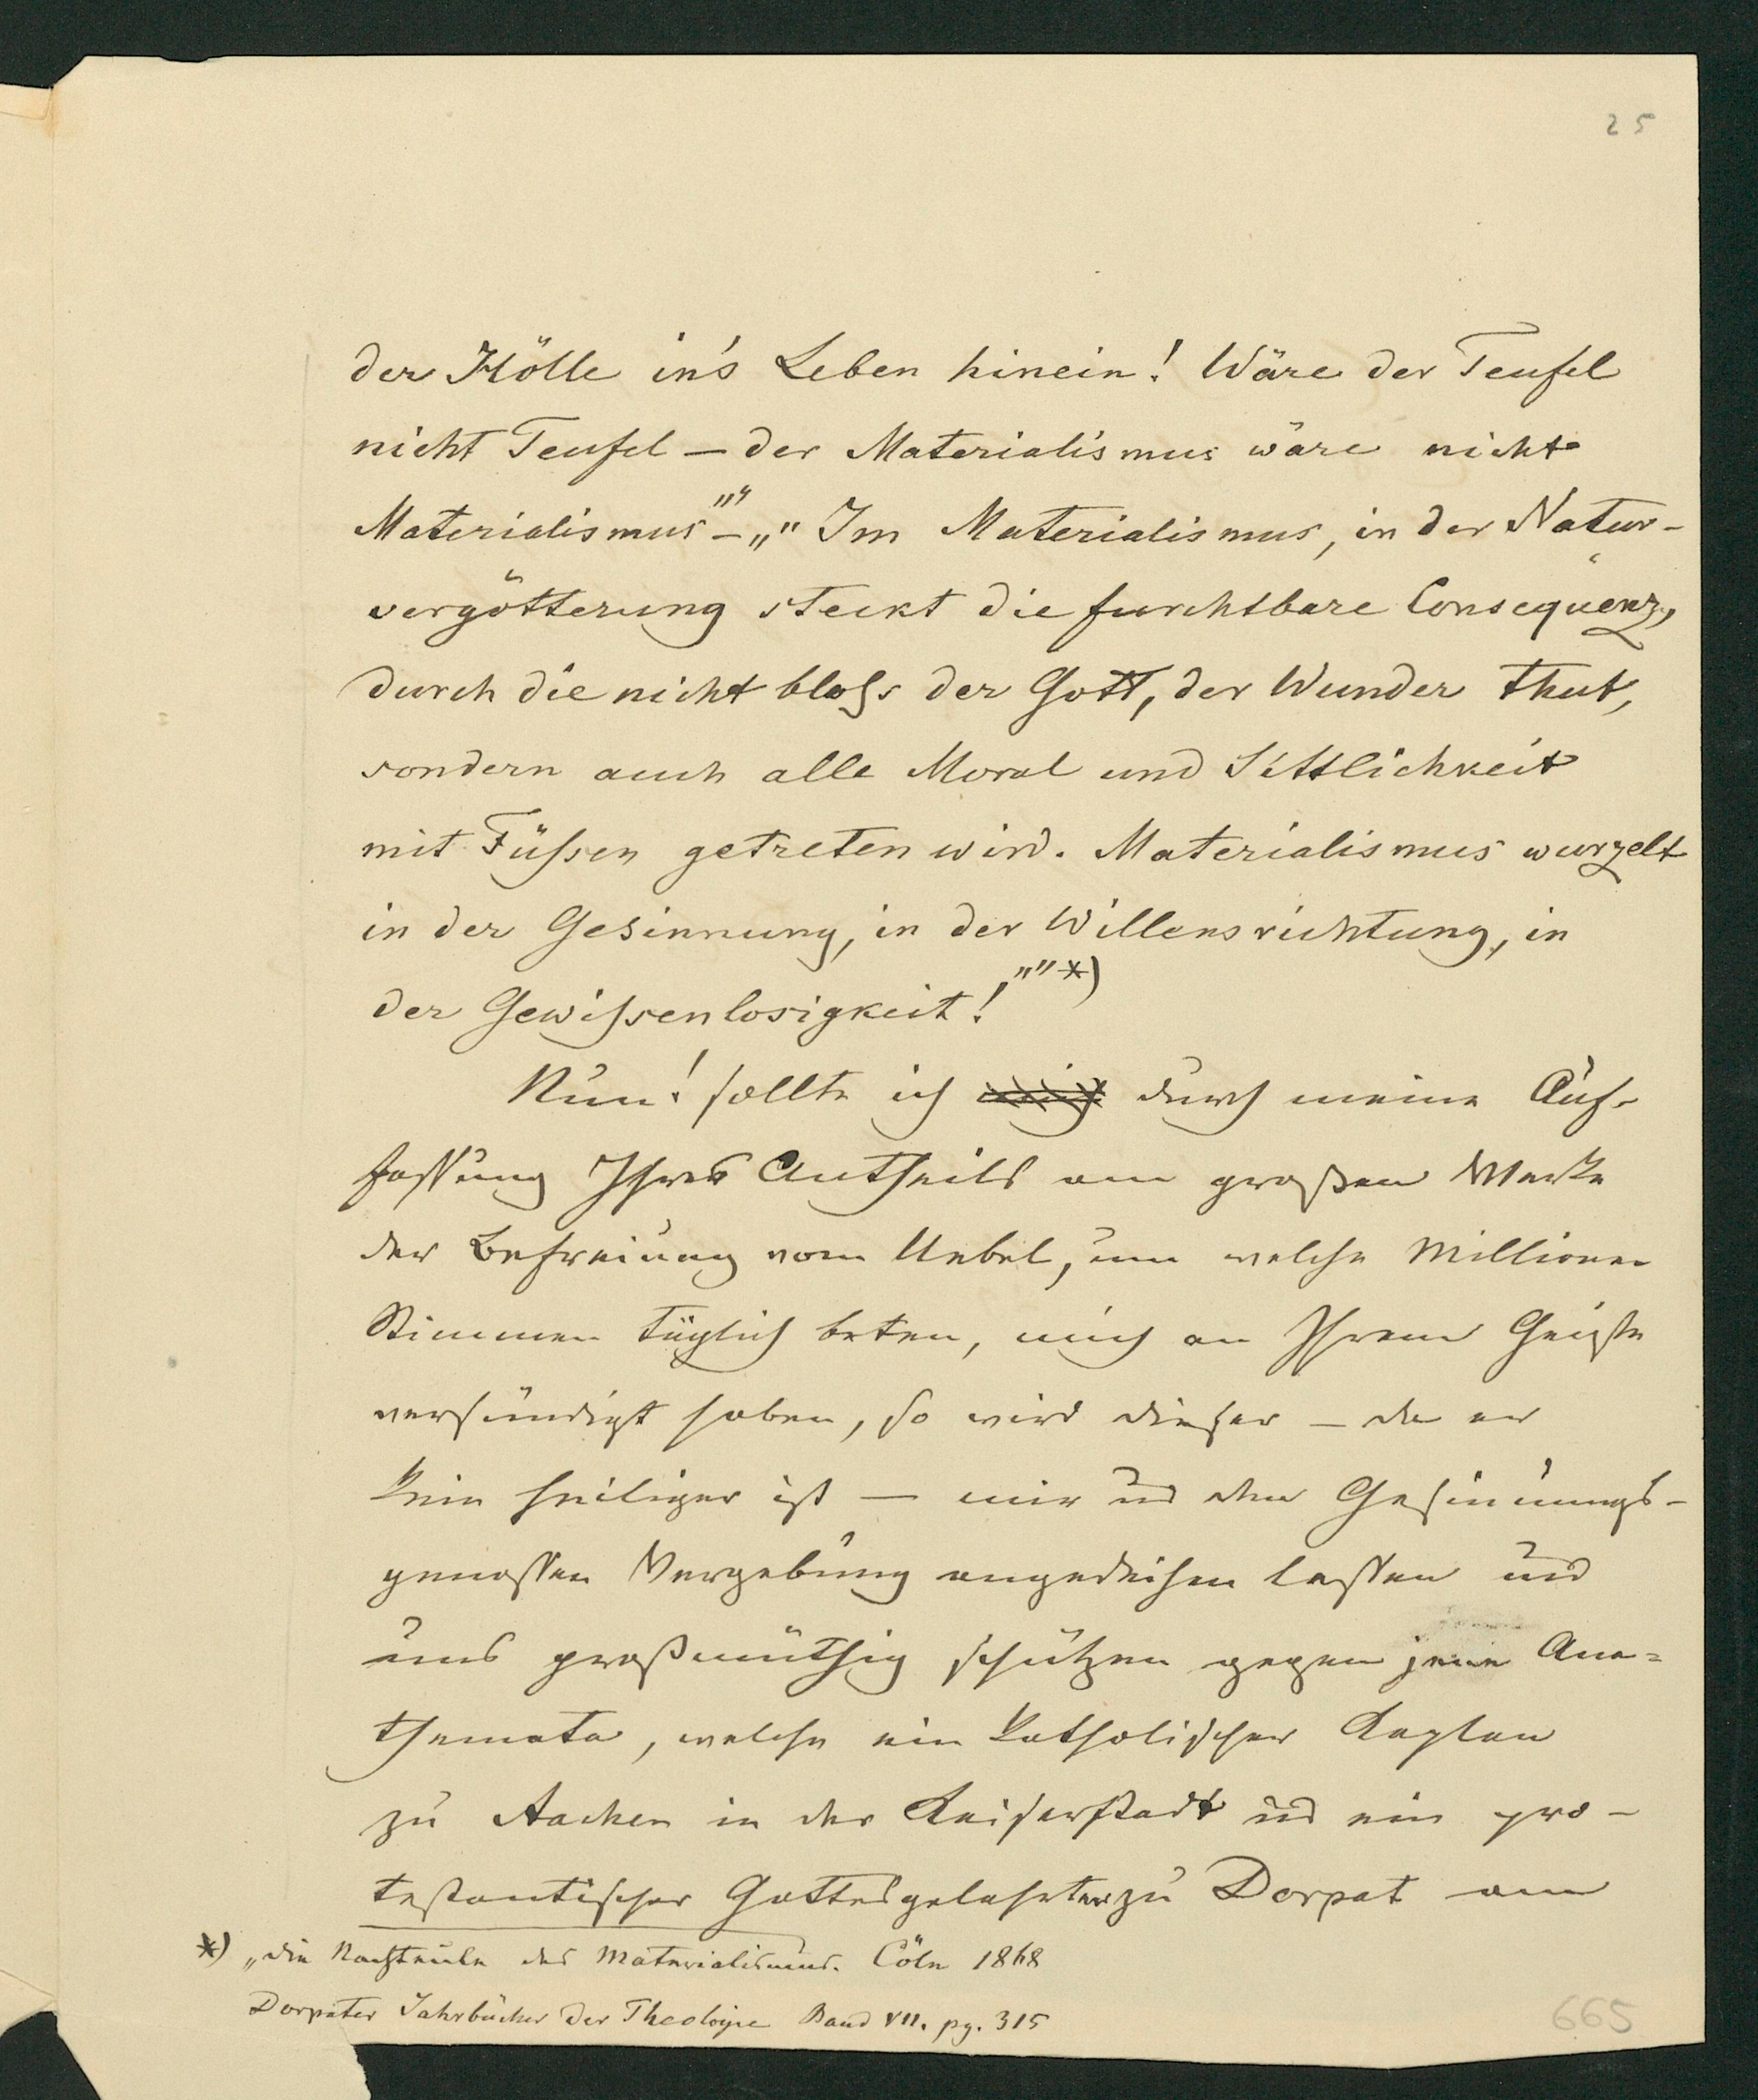 25
der Hölle in's Leben hinein! Wäre der Teufel
nicht Teufel – der Materialismus wäre nicht
Materialismus"" – „" Im Materialismus, in der Natur-
vergötterung steckt die furchtbare Consequenz,
durch die nicht bloß der Gott, der Wunder thut,
sondern auch alle Moral und Sittlichkeit
mit Füßen getreten wird. Materialismus wurzelt
in der Gesinnung, in der Willensrichtung, in
der Gewißenlosigkeit!"" *)
Nun! sollte ich mich durch meine Auf-
fassung Ihres Antheils am großen Werke
der Befreiung vom Uebel, um welche Millionen
Stimmen täglich beten, mich an Ihrem Geiste
versündigt haben, so wird dieser – da er
kein heiliger ist – mir und den Gesinnungs-
genossen Vergebung angedeihen lassen und
uns großmüthig schützen gegen jene Ana-
themata, welche ein katholischer Kaplan
zu Aachen in der Kaiserstadt und ein pro-
testantischer Gottesgelahrter zu Dorpat am
*) „Die Nachteule des Materialismus. Cöln 1868
Dorpater Jahrbücher der Theologie Band VII. pg. 315
665